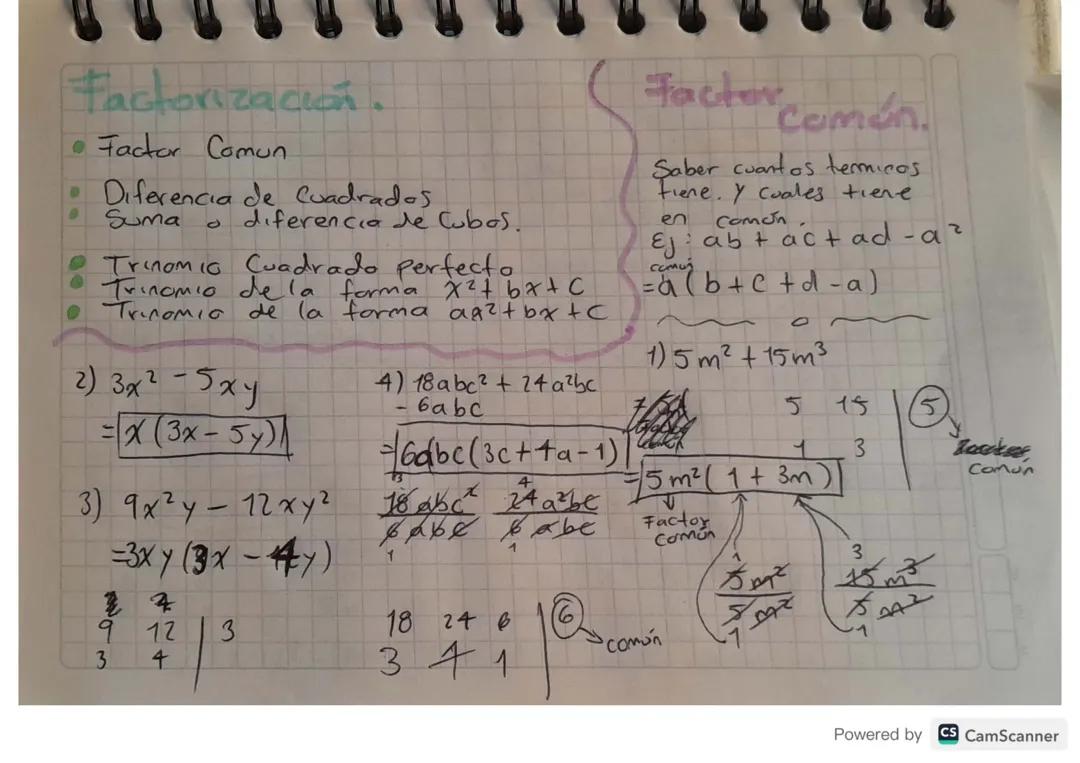 Factorización.
• Factor Comun
• Diferencia de Cuadrados
• Suma o diferencia de Cubos.
• Trinomio Cuadrado perfecto
• Trinomio de la forma x²+ bx+C
• Trinomio de la forma aa²+bx+C
Factor
Común.
Saber cuantos terminos
tiene. y cuales tiene
en común.
Ej: ab + ac + ad - a²
común
=a(b+c+d-a)
1) 5m² + 15m³
5 15 | 5
1 3
común
=5m²(1 + 3m)
Factor
común
1
5m²
5m²
1
3
15m³
5m²
1
2) 3x² - 5xy
= x(3x - 5y)
3) 9x²y - 12xy²
=3xy(3x - 4y)
9 12 | 3
3 4
4) 18abc² + 24a²bc
- 6abc
=6abc(3c+4a-1)
3 4
18abc² 24a²bc
6abc 6abc
1 1
18 24 6 | 6
común
3 4 1
Powered by CS CamScanner